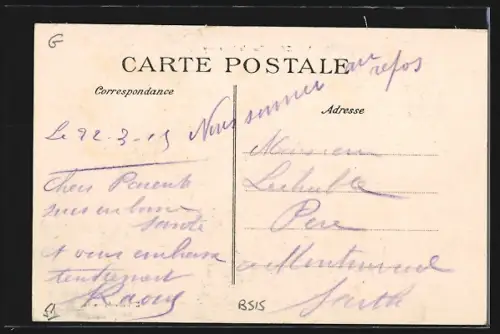 G
CARTE POSTALE
Correspondance
Adresse
Nous sommes au repos
Le 22-3-15
Chers Parents
suis en bonne
santé
et vous embrasse
tendrement
Raoul
Monsieur
Père
à
Sarthe
BS15